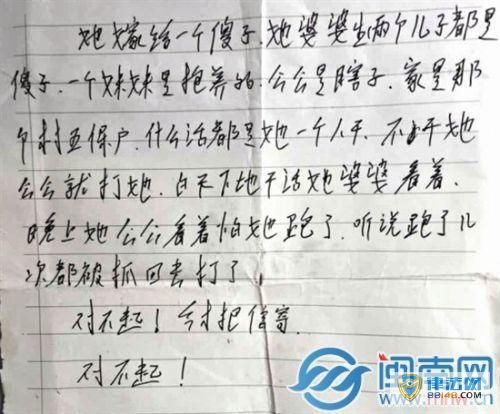 她嫁给一个傻子.她婆婆生两个儿子都是
傻子.一个妹妹是抱养的.公公是瞎子.家是那
个村五保户.什么活都是她一个人干.不干她
公公就打她.白天下地干活她婆婆看着.
晚上她公公看着怕她跑了.听说跑了几
次都被抓回去打了.
对不起!今才把信寄.
对不起!
闽南网
www.mnw.cn
律志网